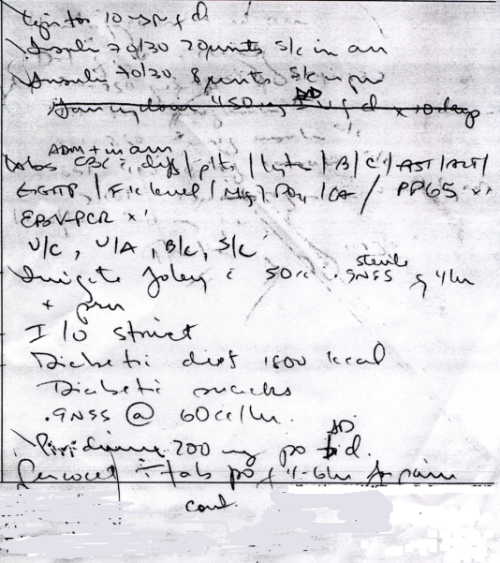 Insulin 70/30 20 units s/c in am
Insulin 70/30 8 units s/c in pm
450 mg q d x 10 days
ADM + in am
Labs CBC c diff / plts / lytes / B / C / AST / ALT /
GGTP / FK level / Mg / PO4 / CA / PP65
EBV-PCR x1
U/C, U/A, B/C, S/C
Irrigate foley c 50cc sterile .9NSS q 4hr
+ prn
I/O strict
Diabetic diet 1800 kcal
Diabetic snacks
.9NSS @ 60cc/hr.
Pyridium 200 mg po
Percocet tab po q 4-6hr for pain
cont.